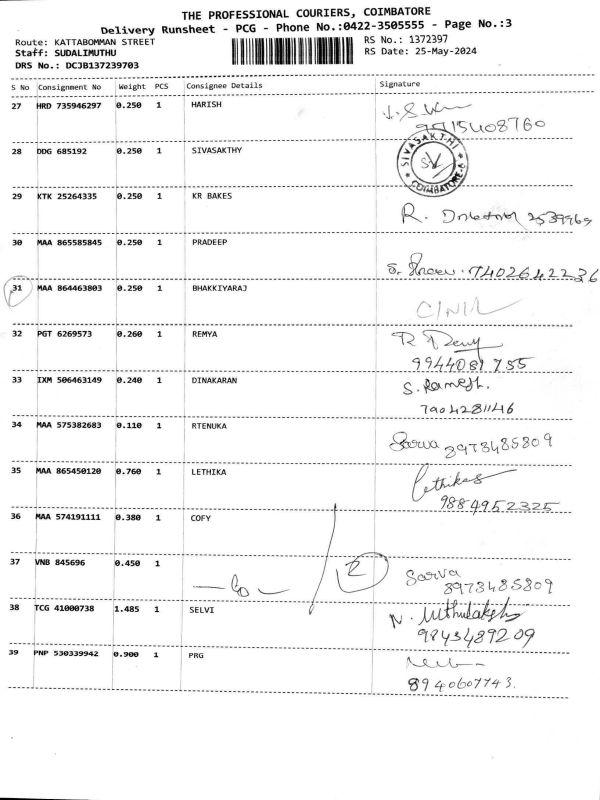 THE PROFESSIONAL COURIERS, COIMBATORE
Delivery Runsheet - PCG - Phone No.:0422-3505555 - Page No.:3
Route: KATTABOMMAN STREET
RS No.: 1372397
Staff: SUDALIMUTHU
RS Date: 25-May-2024
DRS No.: DCJB137239703
S No Consignment No Weight PCS Consignee Details Signature
27 HRD 735946297 0.250 1 HARISH
9715408760
28 DDG 685192 0.250 1 SIVASAKTHY
SIVASAKTHI
COIMBATORE
29 KTK 25264335 0.250 1 KR BAKES
R. 2539969
30 MAA 865585845 0.250 1 PRADEEP
7402642236
31 MAA 864463803 0.250 1 BHAKKIYARAJ
32 PGT 6269573 0.260 1 REMYA
R
9944081755
33 IXM 506463149 0.240 1 DINAKARAN
S. Ramesh.
7904281146
34 MAA 575382683 0.110 1 RTENUKA
Sarva 8973485809
35 MAA 865450120 0.760 1 LETHIKA
Lethikas
9884952325
36 MAA 574191111 0.380 1 COFY
37 VNB 845696 0.450 1
2
Sarva
8973485809
38 TCG 41000738 1.485 1 SELVI
N. Muthulakshi
9843489209
39 PNP 530339942 0.900 1 PRG
8940607743.